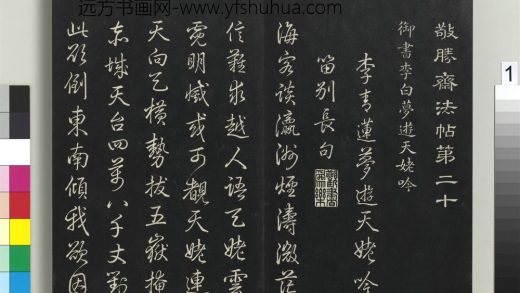 远方书画网-www.yfshuhua.com
敬勝齋法帖第二十
御書李白夢遊天姥吟
李青蓮夢遊天姥吟
留别長句
海客談瀛洲煙濤微茫
信難求越人語天姥雲
霓明滅或可覩天姥連
天向天橫勢拔五嶽掩
赤城天台四萬八千丈對
此欲倒東南傾我欲因
1